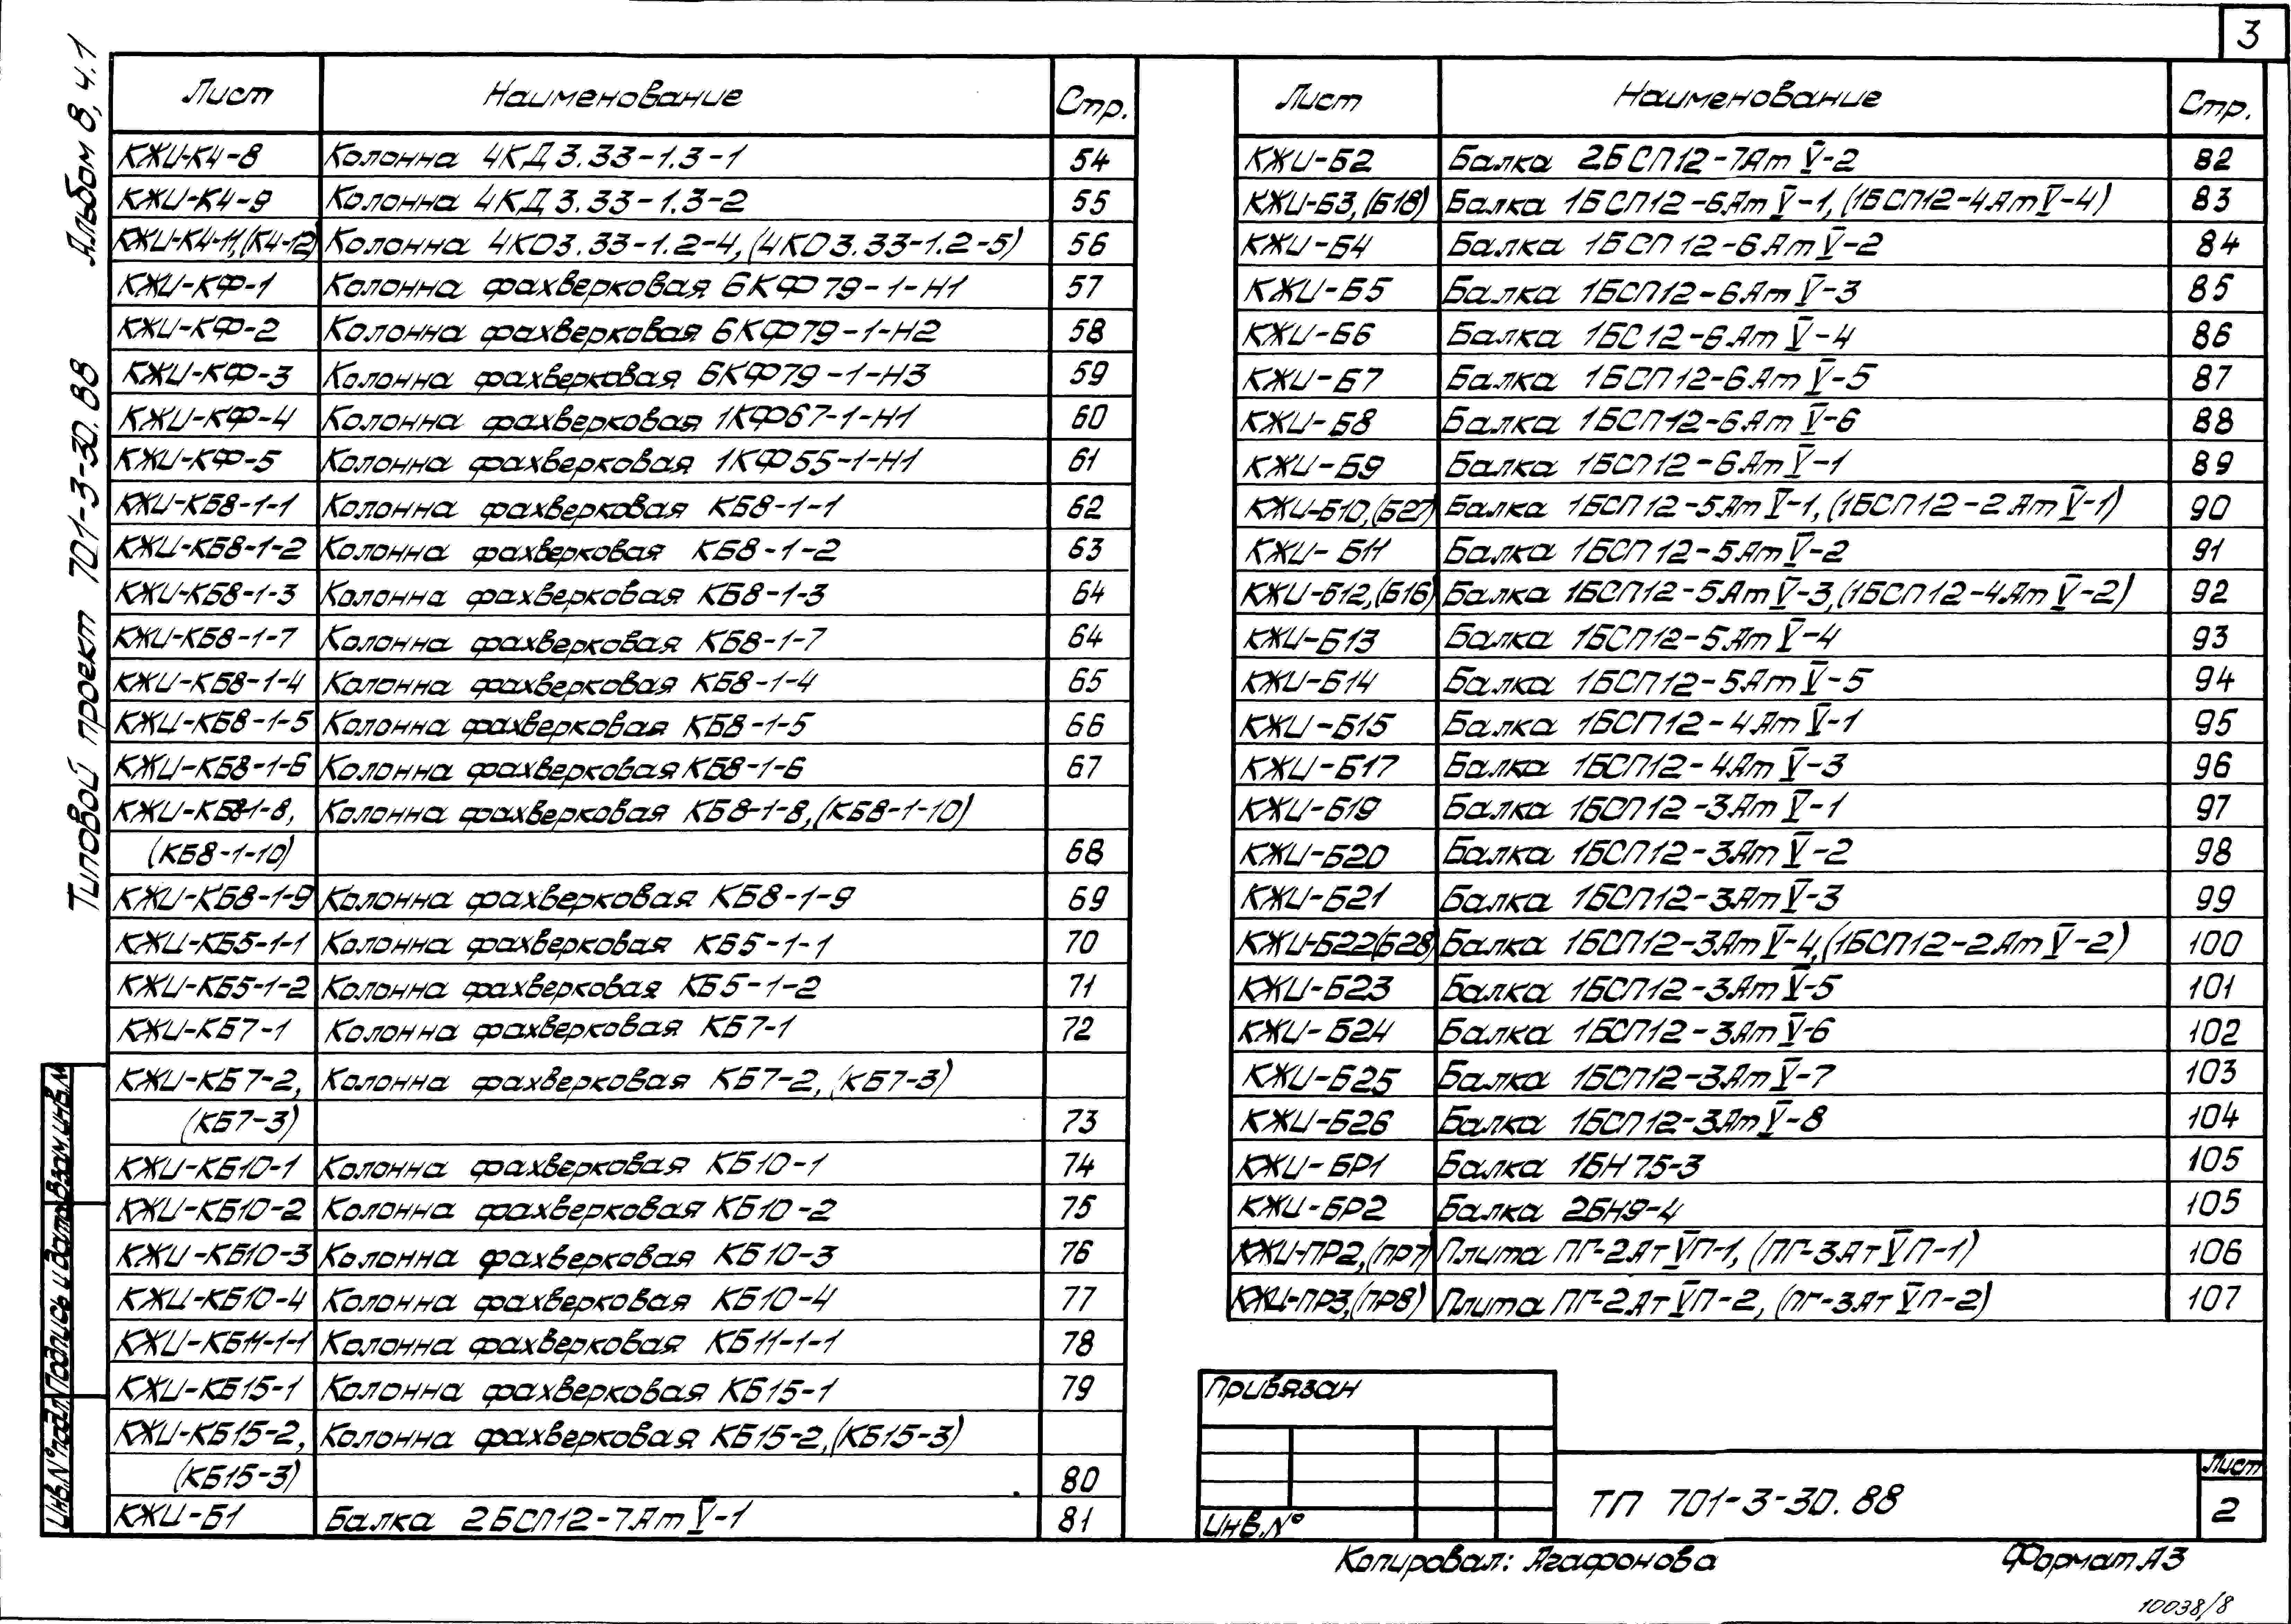 3
Альбом 8, ч.1
Типовой проект 701-3-30.88
Лист Наименование Стр.
КЖИ-К4-8 Колонна 4КД3.33-1.3-1 54
КЖИ-К4-9 Колонна 4КД3.33-1.3-2 55
КЖИ-К4-11,(К4-12) Колонна 4КО3.33-1.2-4,(4КО3.33-1.2-5) 56
КЖИ-КФ-1 Колонна фахверковая 6КФ79-1-Н1 57
КЖИ-КФ-2 Колонна фахверковая 6КФ79-1-Н2 58
КЖИ-КФ-3 Колонна фахверковая 6КФ79-1-Н3 59
КЖИ-КФ-4 Колонна фахверковая 1КФ67-1-Н1 60
КЖИ-КФ-5 Колонна фахверковая 1КФ55-1-Н1 61
КЖИ-КБ8-1-1 Колонна фахверковая КБ8-1-1 62
КЖИ-КБ8-1-2 Колонна фахверковая КБ8-1-2 63
КЖИ-КБ8-1-3 Колонна фахверковая КБ8-1-3 64
КЖИ-КБ8-1-7 Колонна фахверковая КБ8-1-7 64
КЖИ-КБ8-1-4 Колонна фахверковая КБ8-1-4 65
КЖИ-КБ8-1-5 Колонна фахверковая КБ8-1-5 66
КЖИ-КБ8-1-6 Колонна фахверковая КБ8-1-6 67
КЖИ-КБ8-1-8, Колонна фахверковая КБ8-1-8,(КБ8-1-10)
(КБ8-1-10) 68
КЖИ-КБ8-1-9 Колонна фахверковая КБ8-1-9 69
КЖИ-КБ5-1-1 Колонна фахверковая КБ5-1-1 70
КЖИ-КБ5-1-2 Колонна фахверковая КБ5-1-2 71
КЖИ-КБ7-1 Колонна фахверковая КБ7-1 72
КЖИ-КБ7-2, Колонна фахверковая КБ7-2,(КБ7-3)
(КБ7-3) 73
КЖИ-КБ10-1 Колонна фахверковая КБ10-1 74
КЖИ-КБ10-2 Колонна фахверковая КБ10-2 75
КЖИ-КБ10-3 Колонна фахверковая КБ10-3 76
КЖИ-КБ10-4 Колонна фахверковая КБ10-4 77
КЖИ-КБ11-1-1 Колонна фахверковая КБ11-1-1 78
КЖИ-КБ15-1 Колонна фахверковая КБ15-1 79
КЖИ-КБ15-2, Колонна фахверковая КБ15-2,(КБ15-3)
(КБ15-3) 80
КЖИ-Б1 Балка 2БСП12-7АтV-1 81
Лист Наименование Стр.
КЖИ-Б2 Балка 2БСП12-7АтV-2 82
КЖИ-Б3,(Б18) Балка 1БСП12-6АтV-1,(1БСП12-4АтV-4) 83
КЖИ-Б4 Балка 1БСП12-6АтV-2 84
КЖИ-Б5 Балка 1БСП12-6АтV-3 85
КЖИ-Б6 Балка 1БС12-6АтV-4 86
КЖИ-Б7 Балка 1БСП12-6АтV-5 87
КЖИ-Б8 Балка 1БСП12-6АтV-6 88
КЖИ-Б9 Балка 1БСП12-6АтV-1 89
КЖИ-Б10,(Б27) Балка 1БСП12-5АтV-1,(1БСП12-2АтV-1) 90
КЖИ-Б11 Балка 1БСП12-5АтV-2 91
КЖИ-Б12,(Б16) Балка 1БСП12-5АтV-3,(1БСП12-4АтV-2) 92
КЖИ-Б13 Балка 1БСП12-5АтV-4 93
КЖИ-Б14 Балка 1БСП12-5АтV-5 94
КЖИ-Б15 Балка 1БСП12-4АтV-1 95
КЖИ-Б17 Балка 1БСП12-4АтV-3 96
КЖИ-Б19 Балка 1БСП12-3АтV-1 97
КЖИ-Б20 Балка 1БСП12-3АтV-2 98
КЖИ-Б21 Балка 1БСП12-3АтV-3 99
КЖИ-Б22(Б28) Балка 1БСП12-3АтV-4,(1БСП12-2АтV-2) 100
КЖИ-Б23 Балка 1БСП12-3АтV-5 101
КЖИ-Б24 Балка 1БСП12-3АтV-6 102
КЖИ-Б25 Балка 1БСП12-3АтV-7 103
КЖИ-Б26 Балка 1БСП12-3АтV-8 104
КЖИ-БР1 Балка 1БН75-3 105
КЖИ-БР2 Балка 2БН9-4 105
КЖИ-ПР2,(ПР7) Плита ПГ-2АтVП-1,(ПГ-3АтVП-1) 106
КЖИ-ПР3,(ПР8) Плита ПГ-2АтVП-2,(ПГ-3АтVП-2) 107
Инв.N°подл. Подпись и дата Взам.инв.N
Привязан
Инв.N°
ТП 701-3-30.88
Лист
2
Копировал: Агафонова
Формат А3
10038/8